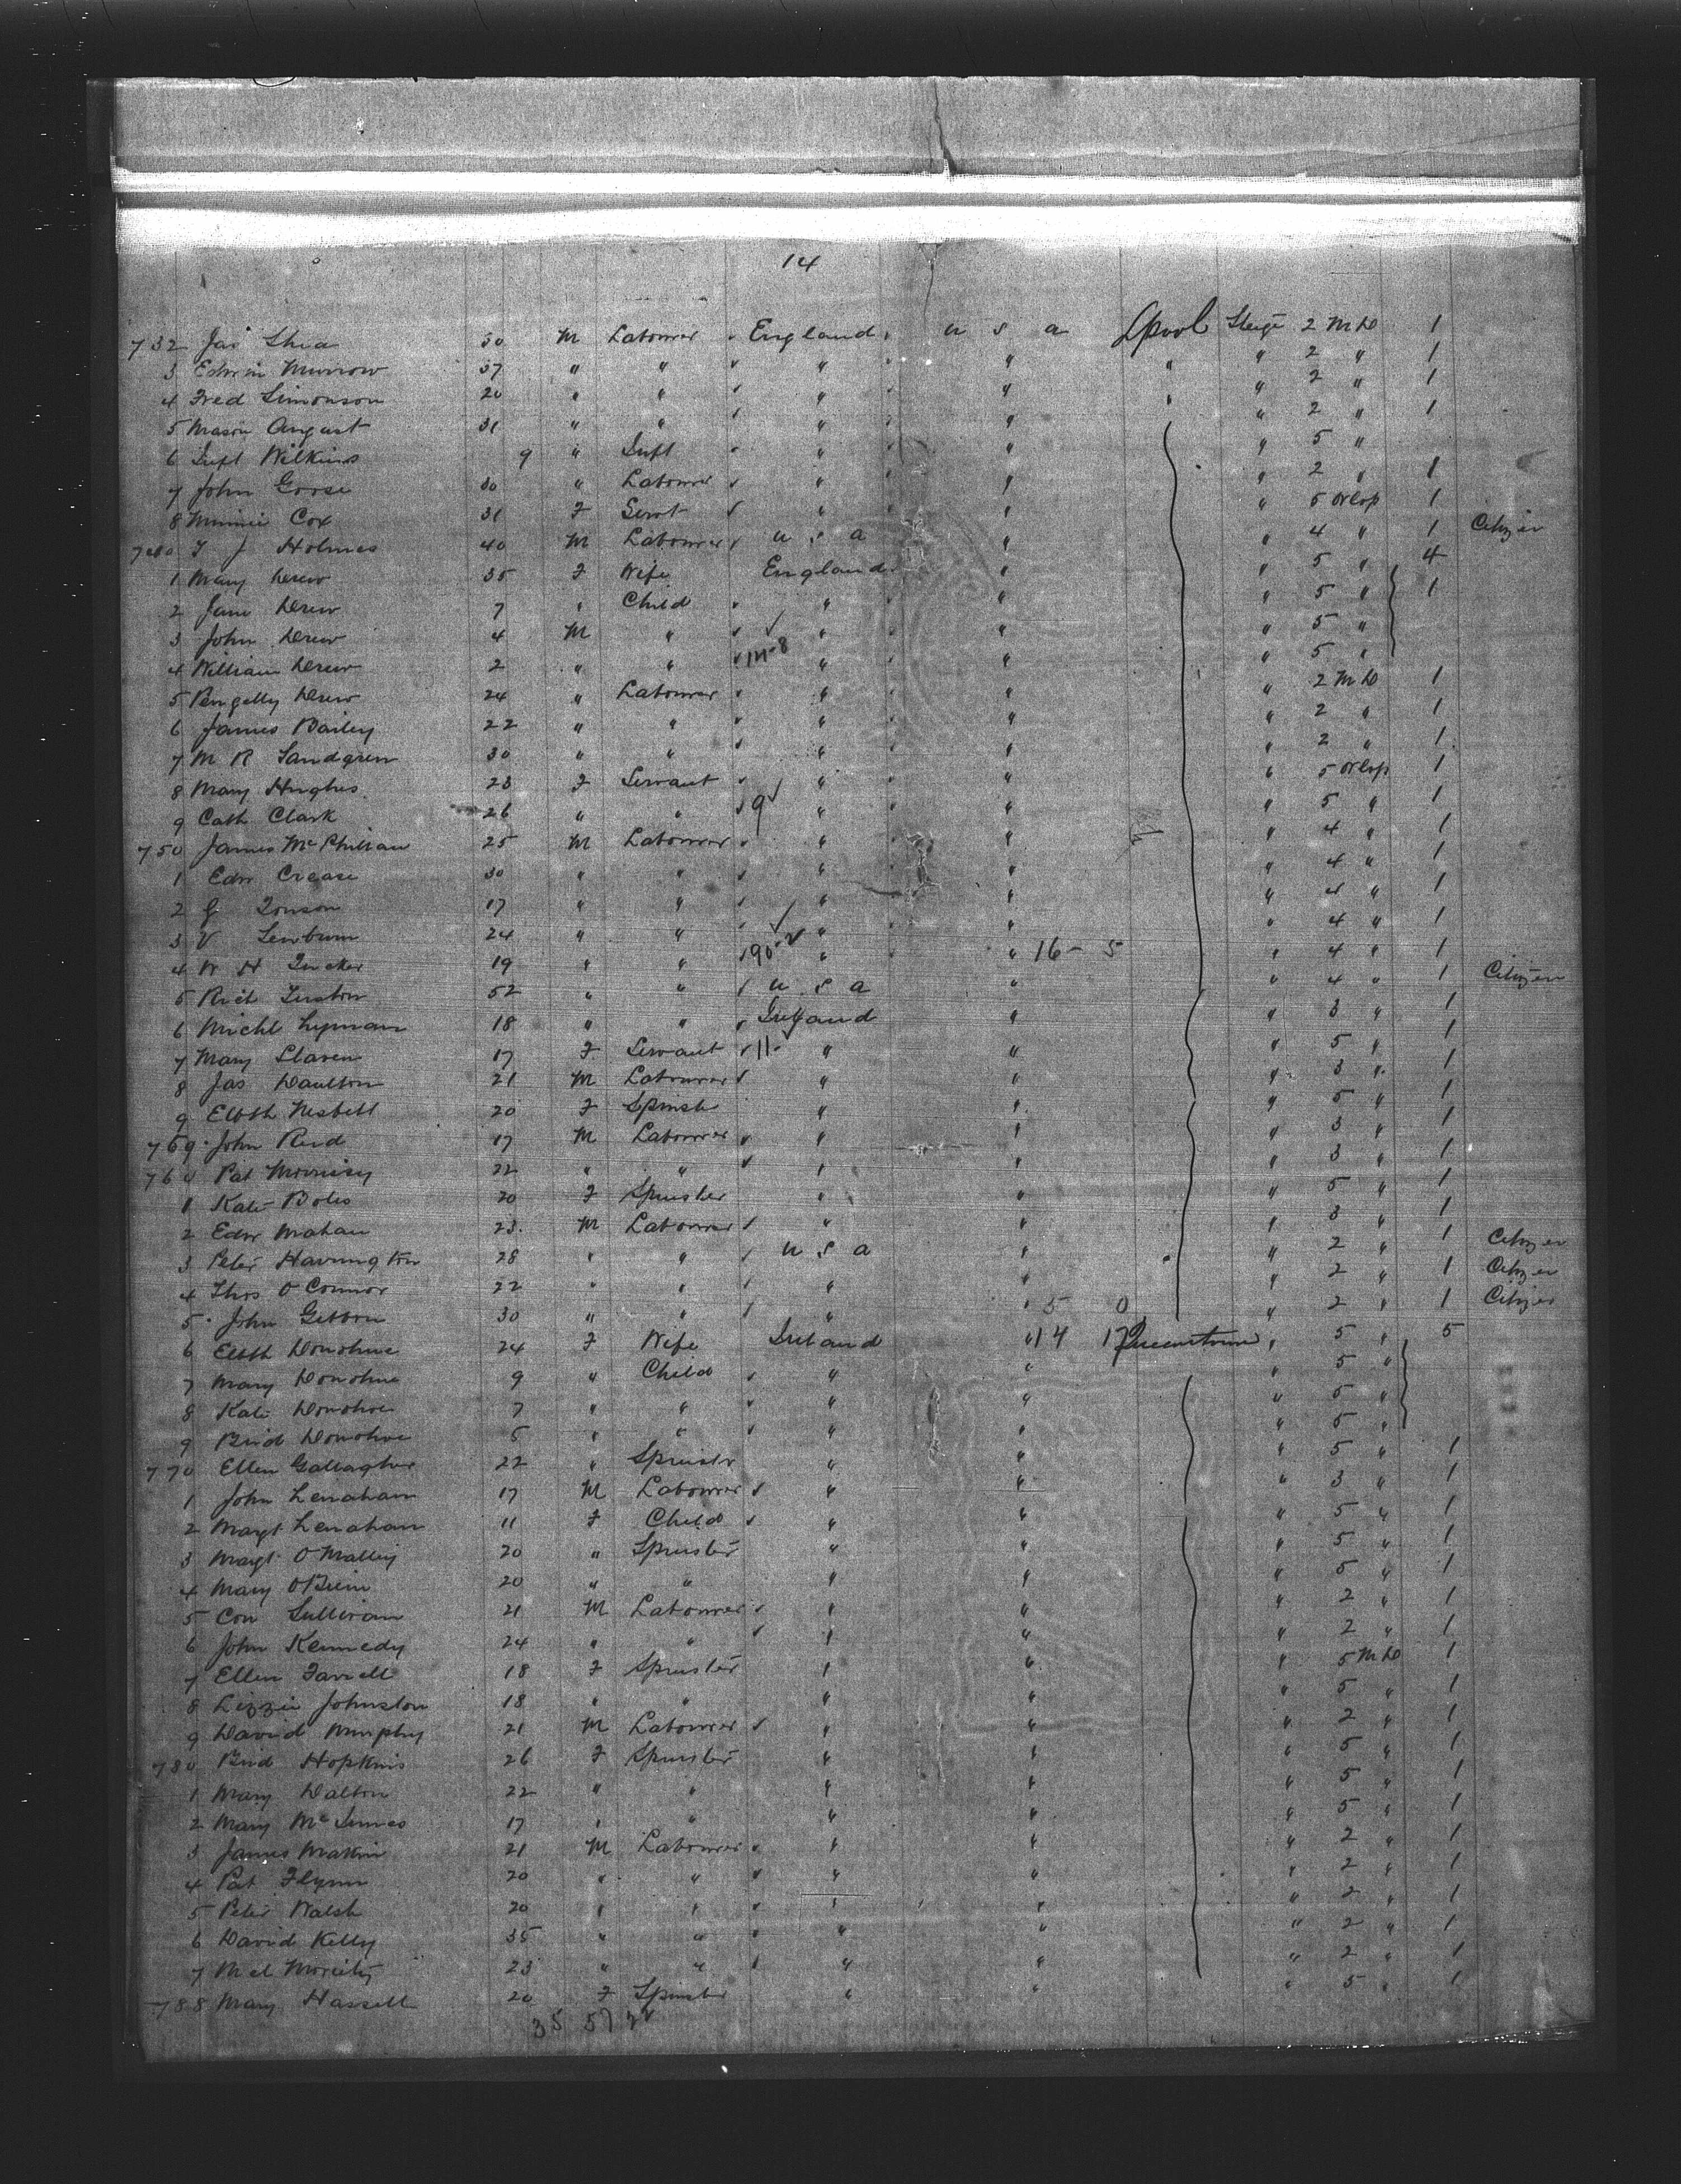 14
732 Jas Shea 30 M Labourer " England " U S A Lpool Steige 2 M D 1
3 Edwin Murrow 37 " " " " " " 2 " 1
4 Fred Simonson 20 " " " " " " 2 " 1
5 Mason August 31 " " " " " 2 " 1
6 Wilkins 9 " " " " 5 "
7 John Goose 30 " Labourer " " " 2 " 1
8 Minnie Cox 31 F Servt " " " 5 Orlop 1
740 J Holmes 40 M Labourer U S A " " 4 " 1 Citizen
1 Mary Drew 35 F Wife England " " 5 " 4
2 Jane Drew 7 " Child " " " 5 " 1
3 John Drew 4 M " " " " 5 "
4 William Drew 2 " " " " " 5 "
5 Pengelly Drew 24 " Labourer " " " 2 M D 1
6 James Bailey 22 " " " " " 2 " 1
7 M R Sandgren 30 " " " " " 2 " 1
8 Mary Hughes 23 F Servant " " " 5 Orlop 1
9 Cath Clark 26 " " 9 " " " 5 " 1
750 James McPhilian 25 M Labourer " " " 4 " 1
1 Edw Crease 30 " " " " " 4 " 1
2 G Jonson 17 " " " " " 4 " 1
3 V 24 " " " " " 4 " 1
4 W H Tucker 19 " " 90-2 " " 16 - 5 " 4 " 1
5 Rich 52 " " U S A " " 4 " 1 Citizen
6 Michl Lyman 18 " " Ireland " " 3 " 1
7 Mary Slaven 17 F Servant 11- " " " 5 " 1
8 Jas Daulton 21 M Labourer " " " 3 " 1
9 Elbth Nesbett 20 F Spinstr " " " 5 " 1
769 John Reid 17 M Labourer " " " 3 " 1
760 Pat Morrisey 22 " " " " " 3 " 1
1 Kate Boles 20 F Spinster " " " 5 " 1
2 Edw Mahan 23 M Labourer " " " 3 " 1
3 Peter Harrington 28 " " U S A " " 2 " 1 Citizen
4 Thos O Connor 22 " " " " " 2 " 1 Citizen
5 John Gibbon 30 " " " " 5 0 " 2 " 1 Citizen
6 Elbth Donohue 24 F Wife Ireland " 14 17 Queenstown " 5 " 5
7 Mary Donohue 9 " Child " " " 5 "
8 Kate Donohue 7 " " " " " 5 "
9 Brid Donohue 5 " " " " " 5 "
770 Ellen Gallagher 22 " Spinstr " " " 5 " 1
1 John Lenaham 17 M Labourer " " " 3 " 1
2 Margt Lenaham 11 F Child " " " 5 " 1
3 Margt O Malley 20 " Spinster " " " 5 " 1
4 Mary O Brien 20 " " " " " 5 " 1
5 Con Sullivan 21 M Labourer " " " 2 " 1
6 John Kennedy 24 " " " " " 2 " 1
7 Ellen Farrell 18 F Spinster " " " 5 M D 1
8 Lizzie Johnston 18 " " " " " 5 " 1
9 David Murphy 21 M Labourer " " " 2 " 1
780 Brid Hopkins 26 F Spinster " " " 5 " 1
1 Mary Dalton 22 " " " " " 5 " 1
2 Mary 17 " " " " " 5 " 1
3 James Makin 21 M Labourer " " " 2 " 1
4 Pat Flynn 20 " " " " " 2 " 1
5 Peter Walsh 20 " " " " " 2 " 1
6 David Kelly 35 " " " " " 2 " 1
7 Ml Moriarty 23 " " " " " 2 " 1
788 Mary Hassett 20 F Spinster " " " 5 " 1
35 57